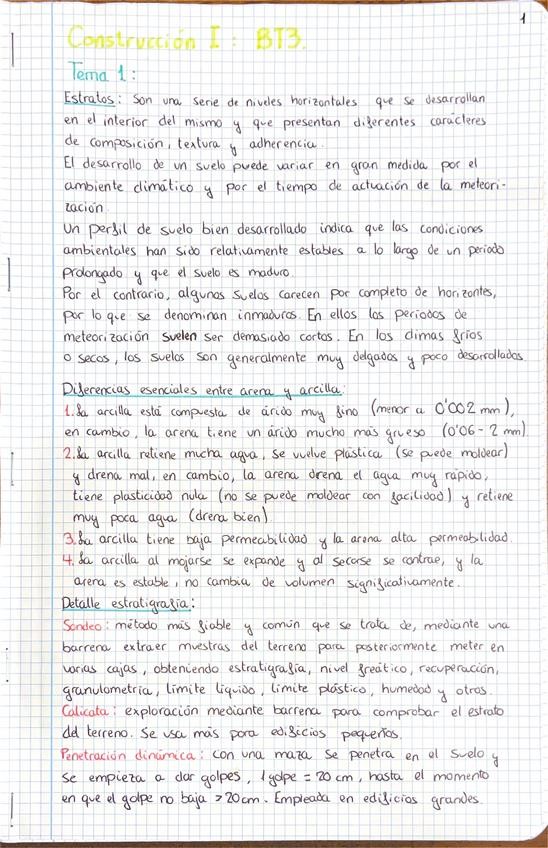 1
Construcción I: BT3.
Tema 1:
Estratos: son una serie de niveles horizontales que se desarrollan
en el interior del mismo y que presentan diferentes carácteres
de composición, textura y adherencia.
El desarrollo de un suelo puede variar en gran medida por el
ambiente climático y por el tiempo de actuación de la meteori-
zación.
Un perfil de suelo bien desarrollado indica que las condiciones
ambientales han sido relativamente estables a lo largo de un periodo
prolongado y que el suelo es maduro.
Por el contrario, algunos suelos carecen por completo de horizontes,
por lo que se denominan inmaduros. En ellos los periodos de
meteorización suelen ser demasiado cortos. En los climas fríos
o secos, los suelos son generalmente muy delgados y poco desarrollados
Diferencias esenciales entre arena y arcilla:
1. La arcilla está compuesta de árido muy fino (menor a 0'002 mm),
en cambio, la arena tiene un árido mucho más grueso (0'06 - 2 mm)
2. La arcilla retiene mucha agua, se vuelve plástica (se puede moldear)
y drena mal, en cambio, la arena drena el agua muy rápido,
tiene plasticidad nula (no se puede moldear con facilidad) y retiene
muy poca agua (drena bien)
3. La arcilla tiene baja permeabilidad y la arena alta permeabilidad.
4. La arcilla al mojarse se expande y al secarse se contrae, y la
arena es estable, no cambia de volumen significativamente.
Detalle estratigrafía:
Sondeo: método más fiable y común que se trata de, mediante una
barrena extraer muestras del terreno para posteriormente meter en
varias cajas, obteniendo estratigrafía, nivel freático, recuperación,
granulometría, límite líquido, límite plástico, humedad y otros.
Calicata: exploración mediante barrena para comprobar el estrato
del terreno. Se usa más para edificios pequeños.
Penetración dinámica: con una maza se penetra en el suelo y
se empieza a dar golpes, 1 golpe = 20 cm, hasta el momento
en que el golpe no baja > 20 cm. Empleada en edificios grandes.